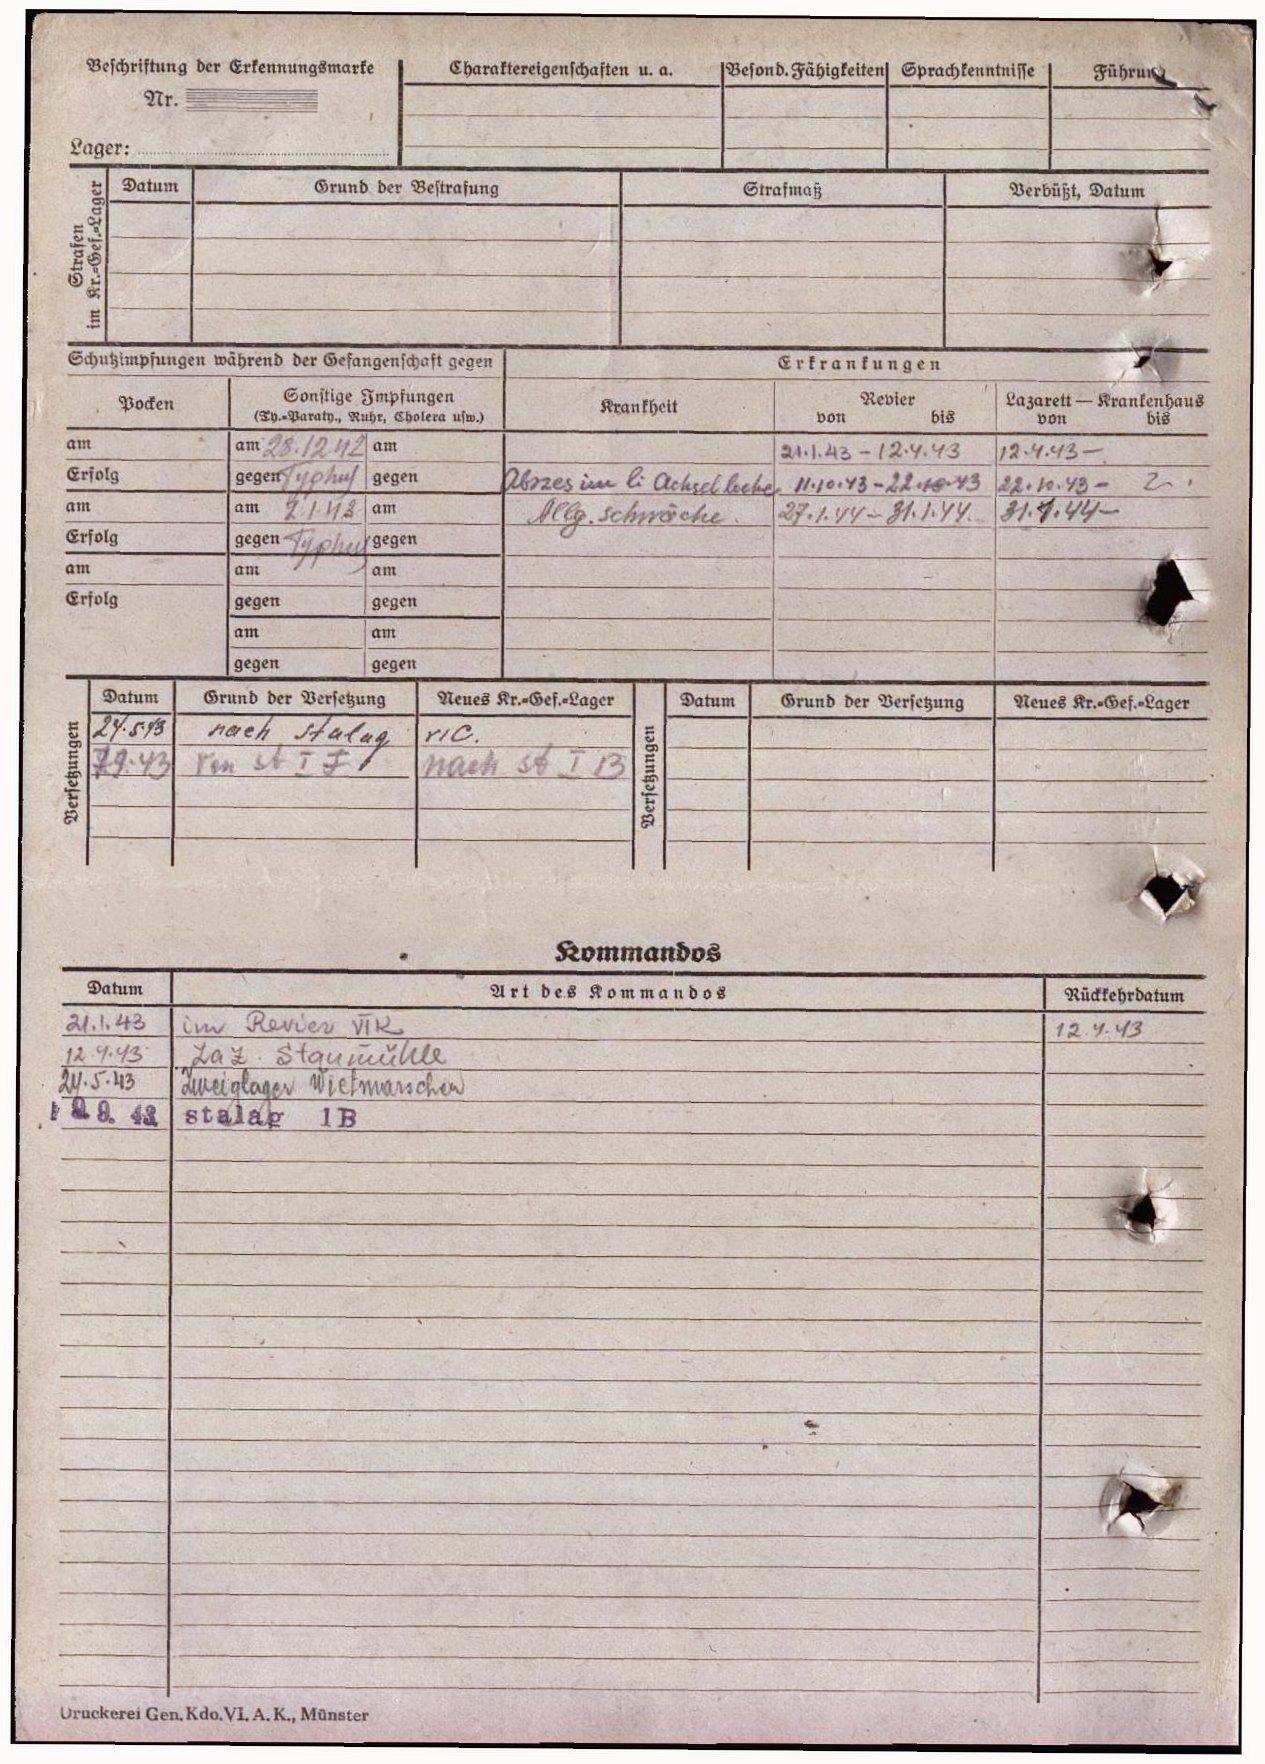 Beschriftung der Erkennungsmarke
Nr.
Lager:
Charaktereigenschaften u. a.
Besond. Fähigkeiten
Sprachkenntnisse
Führung
Strafen im Kr.=Gef.=Lager
Datum
Grund der Bestrafung
Strafmaß
Verbüßt, Datum
Schutzimpfungen während der Gefangenschaft gegen
Erkrankungen
Pocken
Sonstige Impfungen
(Ty.=Paraty., Ruhr, Cholera usw.)
Krankheit
Revier
von bis
Lazarett — Krankenhaus
von bis
am am 28.12.42 am 21.1.43 - 12.4.43 12.4.43 -
Erfolg gegen Typhus gegen Abszes im li Achselhöhle 11.10.43 - 22.10.43 22.10.43 -
am am 2.1.43 am Allg. schwäche. 27.1.44 - 31.1.44. 31.1.44 -
Erfolg gegen Typhus gegen
am am am
Erfolg gegen gegen
am am
gegen gegen
Versetzungen
Datum Grund der Versetzung Neues Kr.=Gef.=Lager
24.5.43 nach Stalag VI C.
von st I F nach st I B
Versetzungen
Datum Grund der Versetzung Neues Kr.=Gef.=Lager
Kommandos
Datum Art des Kommandos Rückkehrdatum
21.1.43 im Revier VI K 12.4.43
12.4.43 Laz. Staumühle
24.5.43 Zweiglager Wietmarschen
9. 43 stalag 1B
Druckerei Gen. Kdo. VI. A. K., Münster